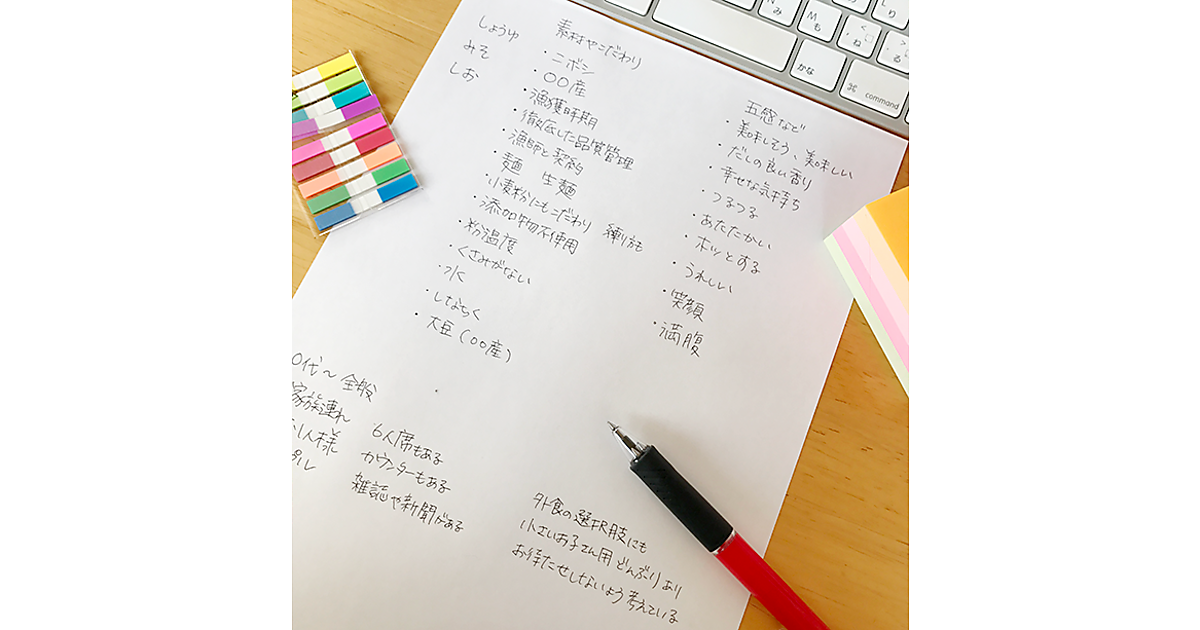 しょうゆ
みそ
しお
素材やこだわり
・ニボシ
・〇〇産
・漁獲時期
・徹底した品質管理
・漁師と契約
・麺 生麺
・小麦粉にもこだわり 練り方も
・添加物不使用
・粉温度
・くさみがない
・水
・しなちく
・大豆(〇〇産)
五感など
・美味しそう、美味しい
・だしの良い香り
・幸せな気持ち
・つるつる
・あたたかい
・ホッとする
・うれしい
・笑顔
・満腹
0代〜全般
家族連れ
1人様
プル
6人席もある
カウンターもある
雑誌や新聞がある
外食の選択肢にも
小さいお子さん用どんぶりあり
お待たせしないよう考えている
かな
⌘ command
N み
M も
く ね
る
L り